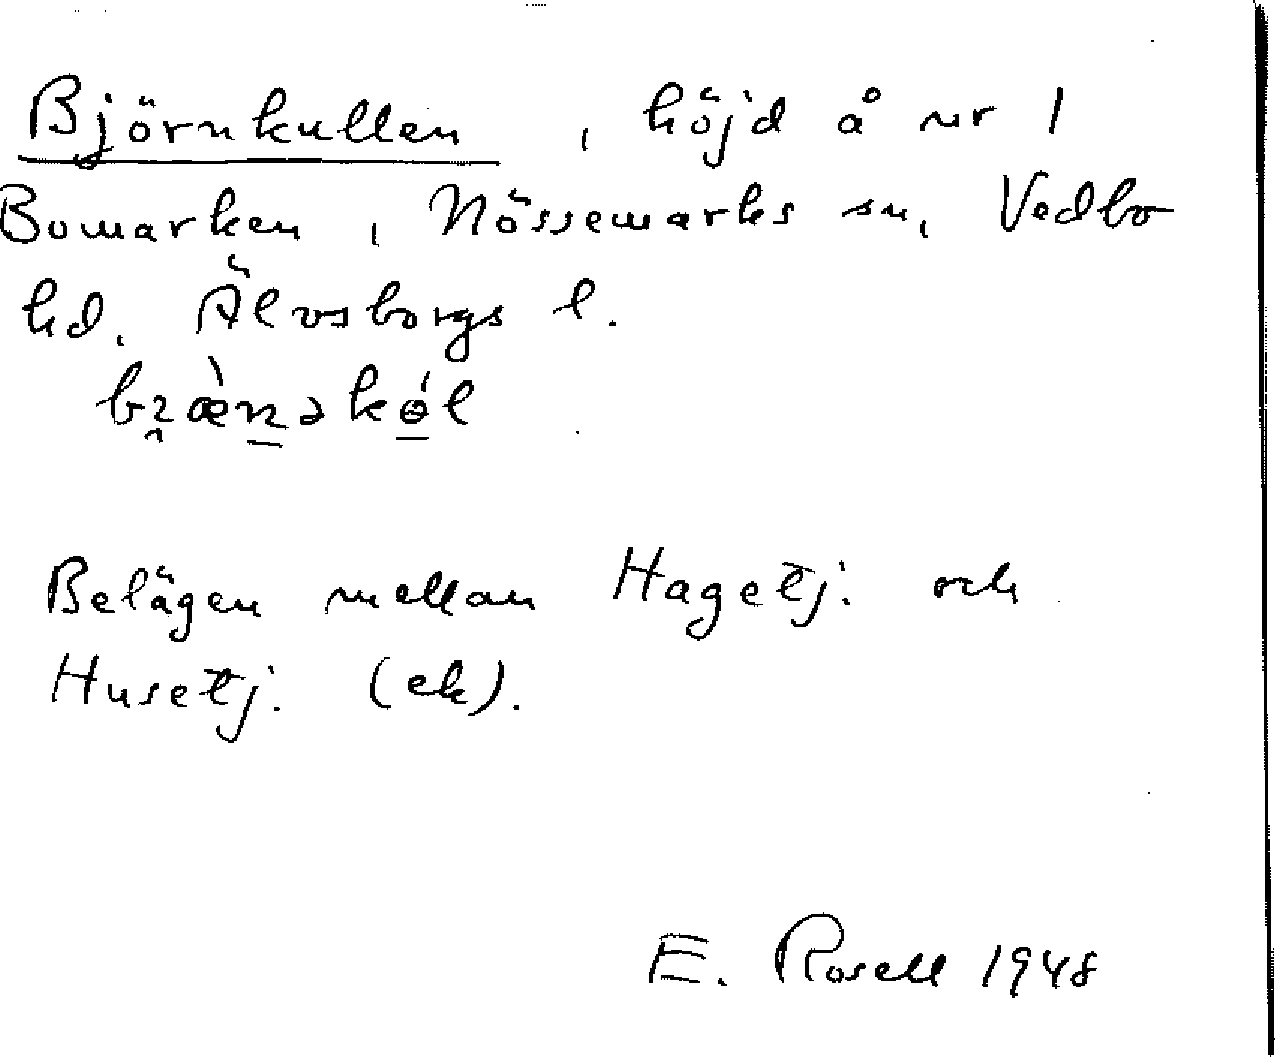 Björnkullen, höjd å nr 1
Bomarken, Nössemarks sn, Vedbo
hd. Älvsborgs l.
Belägen mellan Hagetj. och
Husetj. (ek).
E. Rosell 1948